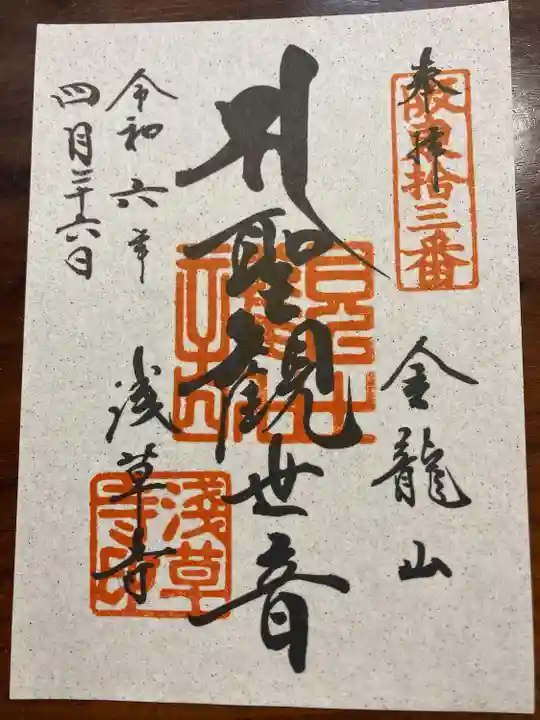 奉拝
坂東拾三番
金龍山
聖観世音
令和六年
四月二十六日
浅草寺
淺草寺印